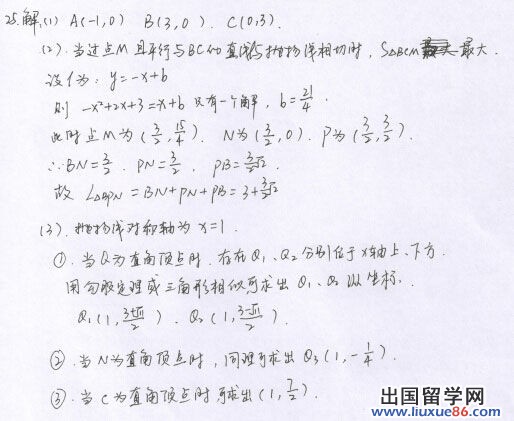 25.解(1) A(-1,0) B(3,0). C(0,3).
(2).当过点M且平行与BC的直线与抛物线相切时, S△BCM 最大.
设作为: y=-x+b
则 -x²+2x+3=-x+b 只有一个解, b=21/4.
此时点M为(3/2, 15/4). N为(3/2,0). P为(3/2,3/2).
∴BN=3/2. PN=3/2. PB=3/2√2.
故 L△BPN=BN+PN+PB=3+3/2√2
(3).抛物线对称轴为x=1.
①.当Q为直角顶点时.存在Q₁、Q₂分别位于x轴上、下方.
用勾股定理或三角形相似可求出Q₁、Q₂以坐标.
Q₁(1, (3+√11)/2). Q₂(1, (3-√11)/2).
②.当N为直角顶点时,同理可求出Q₃(1,-1/4).
③.当C为直角顶点时可求出(1,7/2).
出国留学网
www.liuxue86.com